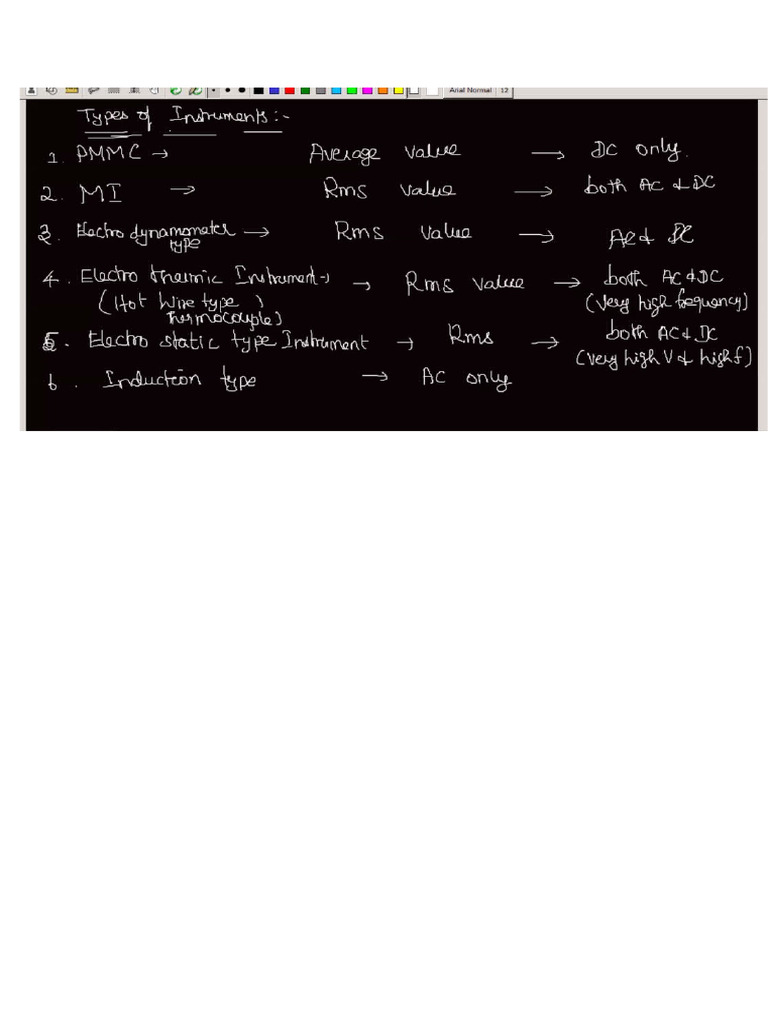 Arial Normal 12
Types of Instruments:-
1. PMMC → Average value → DC only.
2. MI → Rms value → both AC & DC
3. Electro dynamometer type → Rms value → AC & DC
4. Electro thermic Instrument → Rms value → both AC & DC
(Hot wire type, Thermocouple) (very high frequency)
5. Electro static type Instrument → Rms → both AC & DC
(very high V & high f)
6. Induction type → AC only